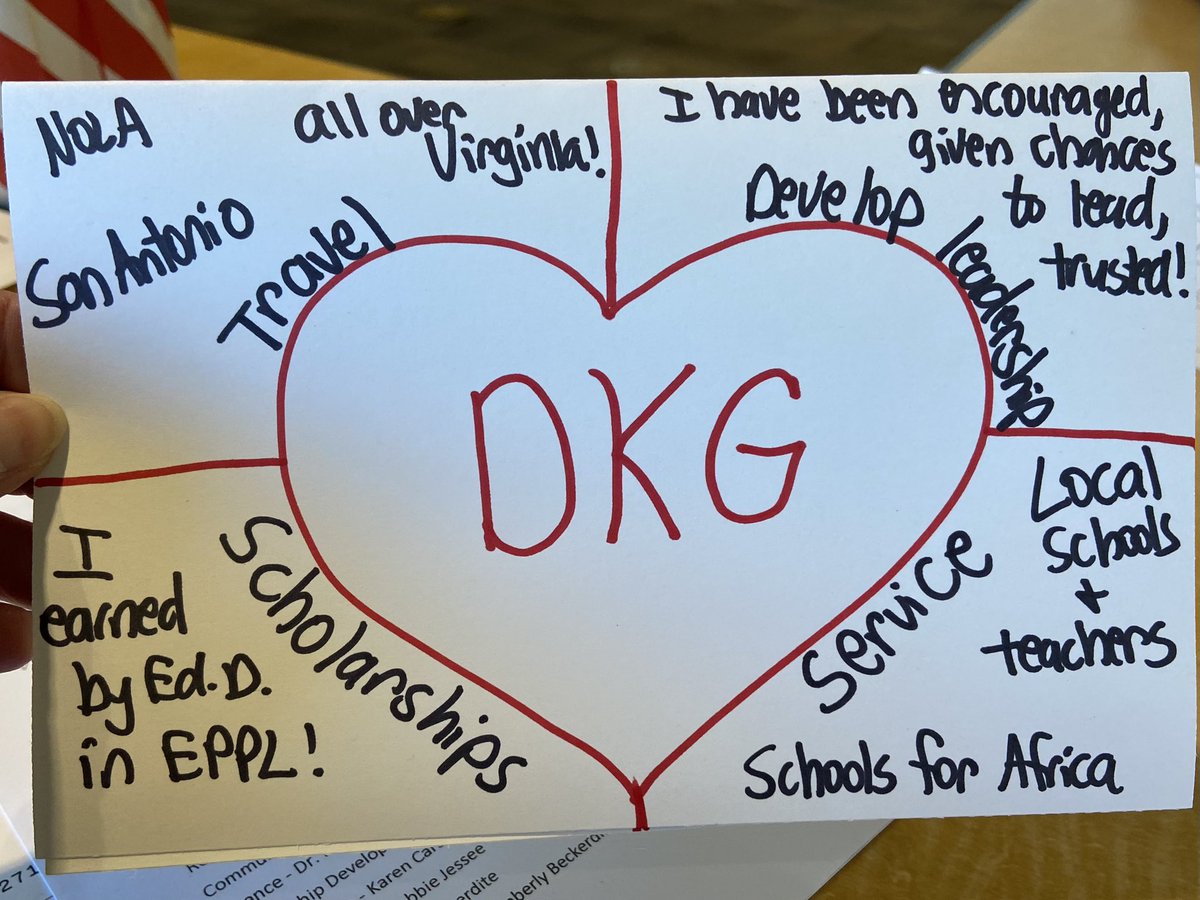 NOLA
all over
Virginia!
San Antonio
Travel
I have been encouraged,
given chances
to lead,
trusted!
Develop leadership
DKG
I
earned
by Ed.D.
in EPPL!
Scholarships
Service
Local
schools
+
teachers
Schools for Africa
271
Commu
ance - Dr.
ship Develop
- Karen Car
bbie Jessee
erdite
mberly Beckerdi